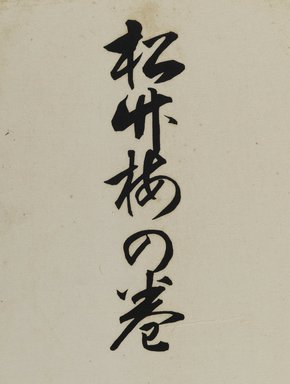 松竹梅の巻